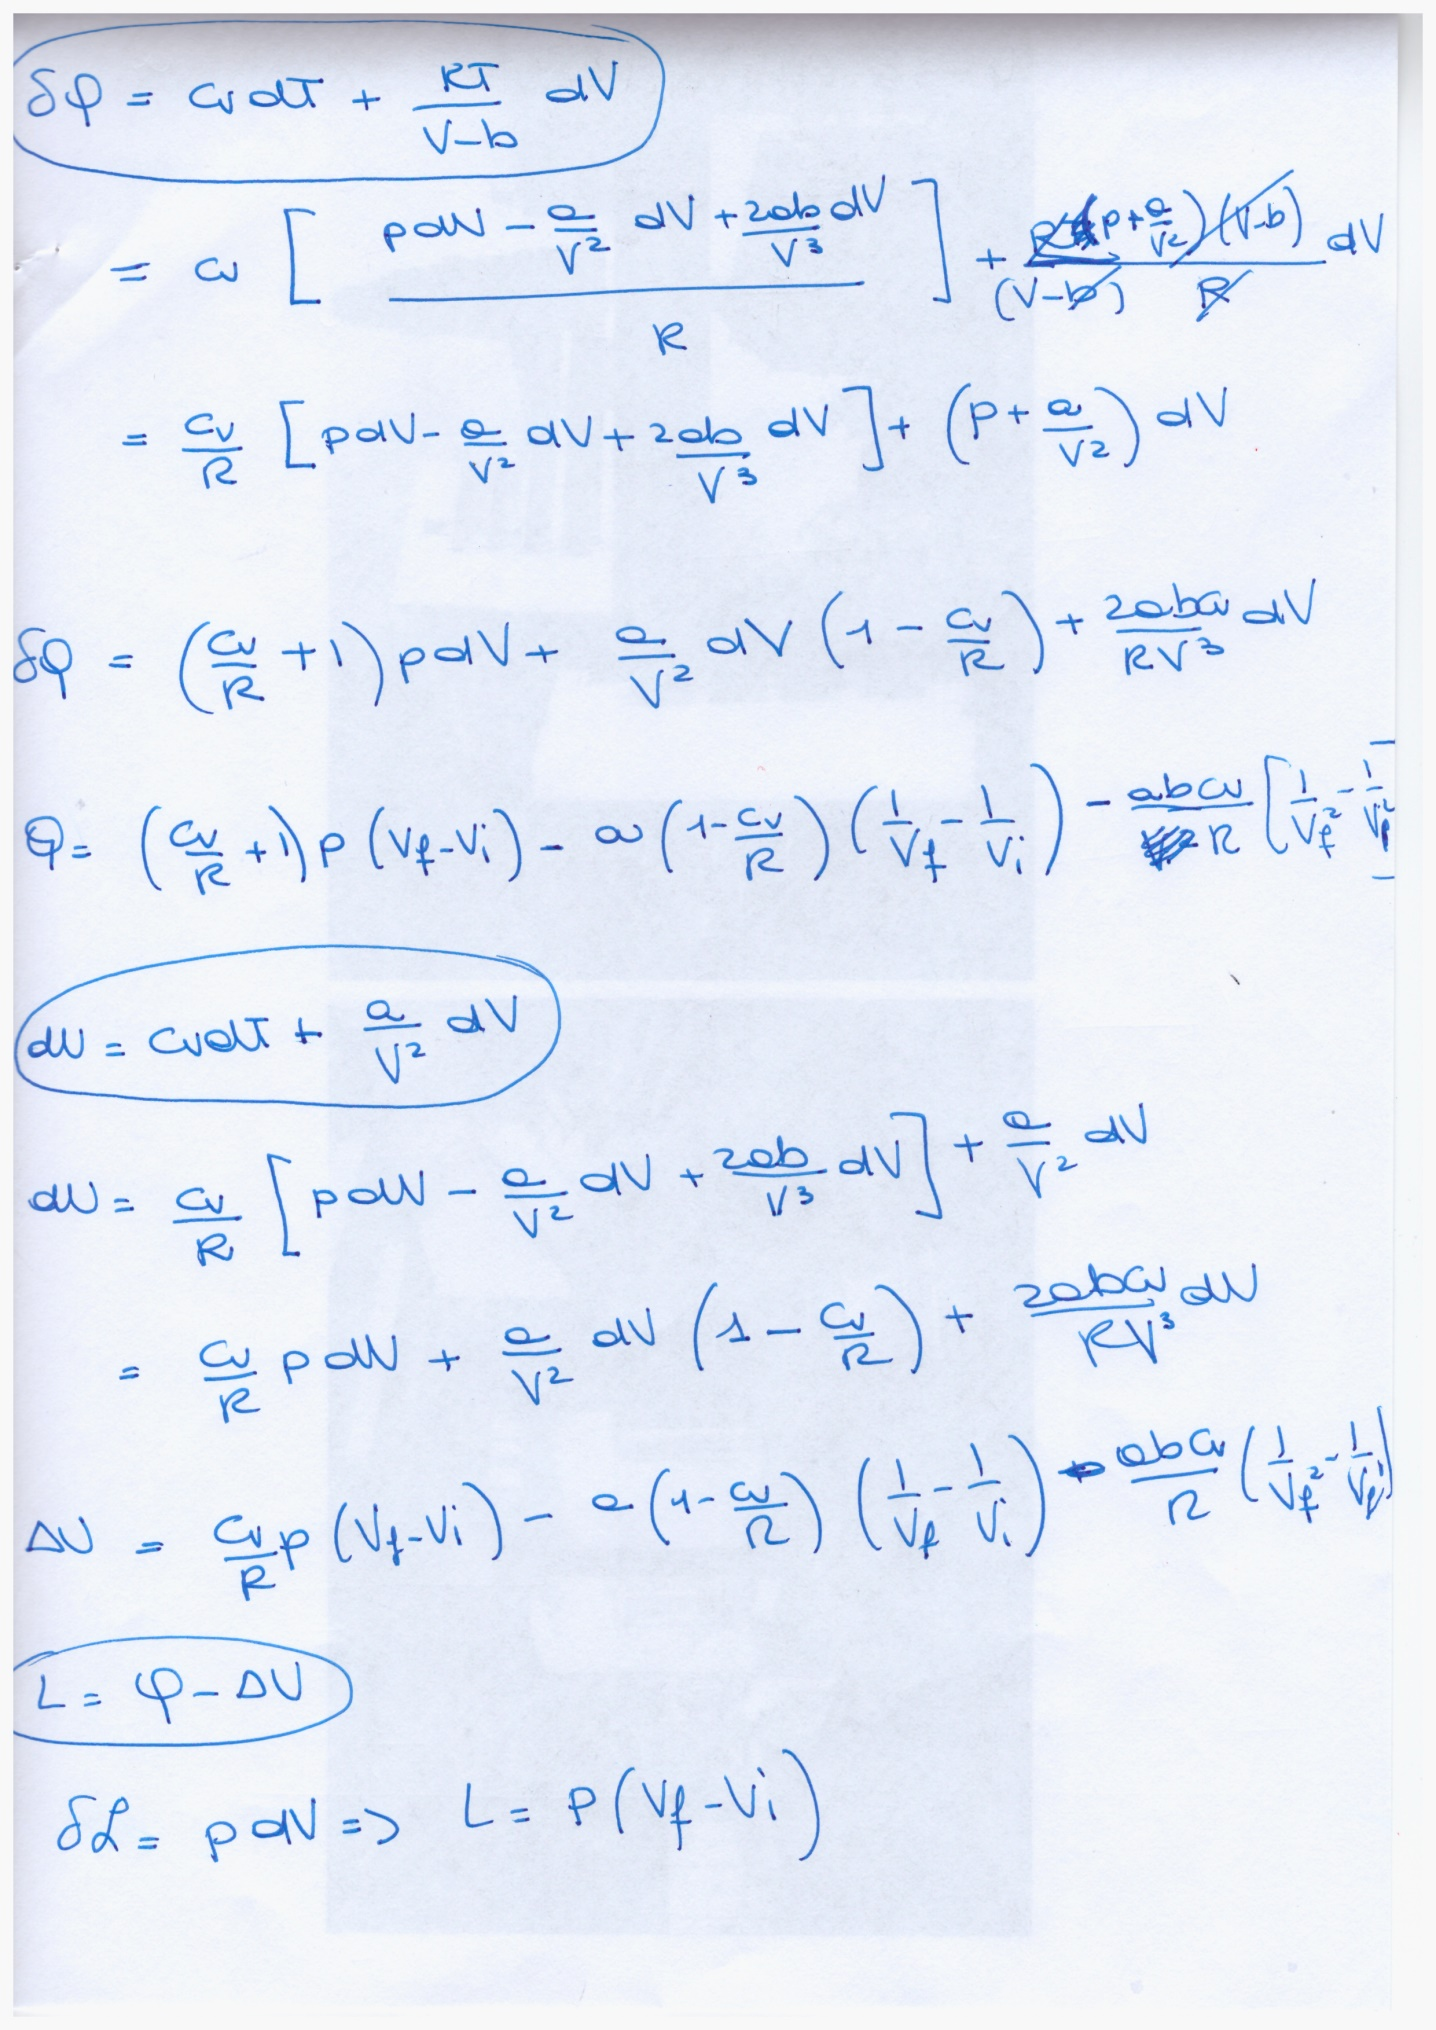 δQ = cv dT + RT/(V-b) dV
= cv [ (pdV - a/V² dV + 2ab dV/V³)/R ] + (p+a/V²)(V-b)/((V-b) R) dV
= cv/R [pdV - a/V² dV + 2ab/V³ dV] + (p + a/V²) dV
δQ = (cv/R + 1) pdV + a/V² dV (1 - cv/R) + 2abcv/RV³ dV
Q = (cv/R + 1) p (Vf-Vi) - a (1-cv/R) (1/Vf - 1/Vi) - abcv/R [1/Vf² - 1/Vi²]
dU = cvdT + a/V² dV
dU = cv/R [pdV - a/V² dV + 2ab/V³ dV] + a/V² dV
= cv/R pdV + a/V² dV (1 - cv/R) + 2abcv/RV³ dV
ΔU = cv/R p (Vf-Vi) - a (1-cv/R) (1/Vf - 1/Vi) - abcv/R (1/Vf² - 1/Vi²)
L = Q - ΔU
δL = pdV => L = P(Vf-Vi)